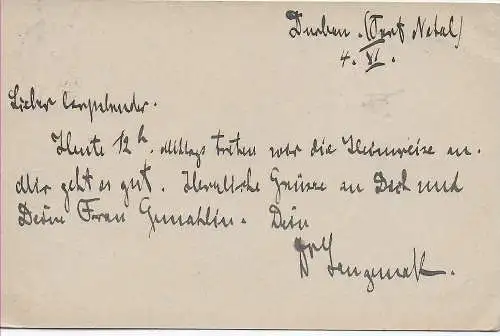 Durban. (Port Natal)
4. XI.
Lieber
Heute 12 h. Mittags treten wir die Heimreise an.
Mir geht es gut. Herzliche Grüsse an Dich und
Deine Frau Gemahlin. Dein
Dr